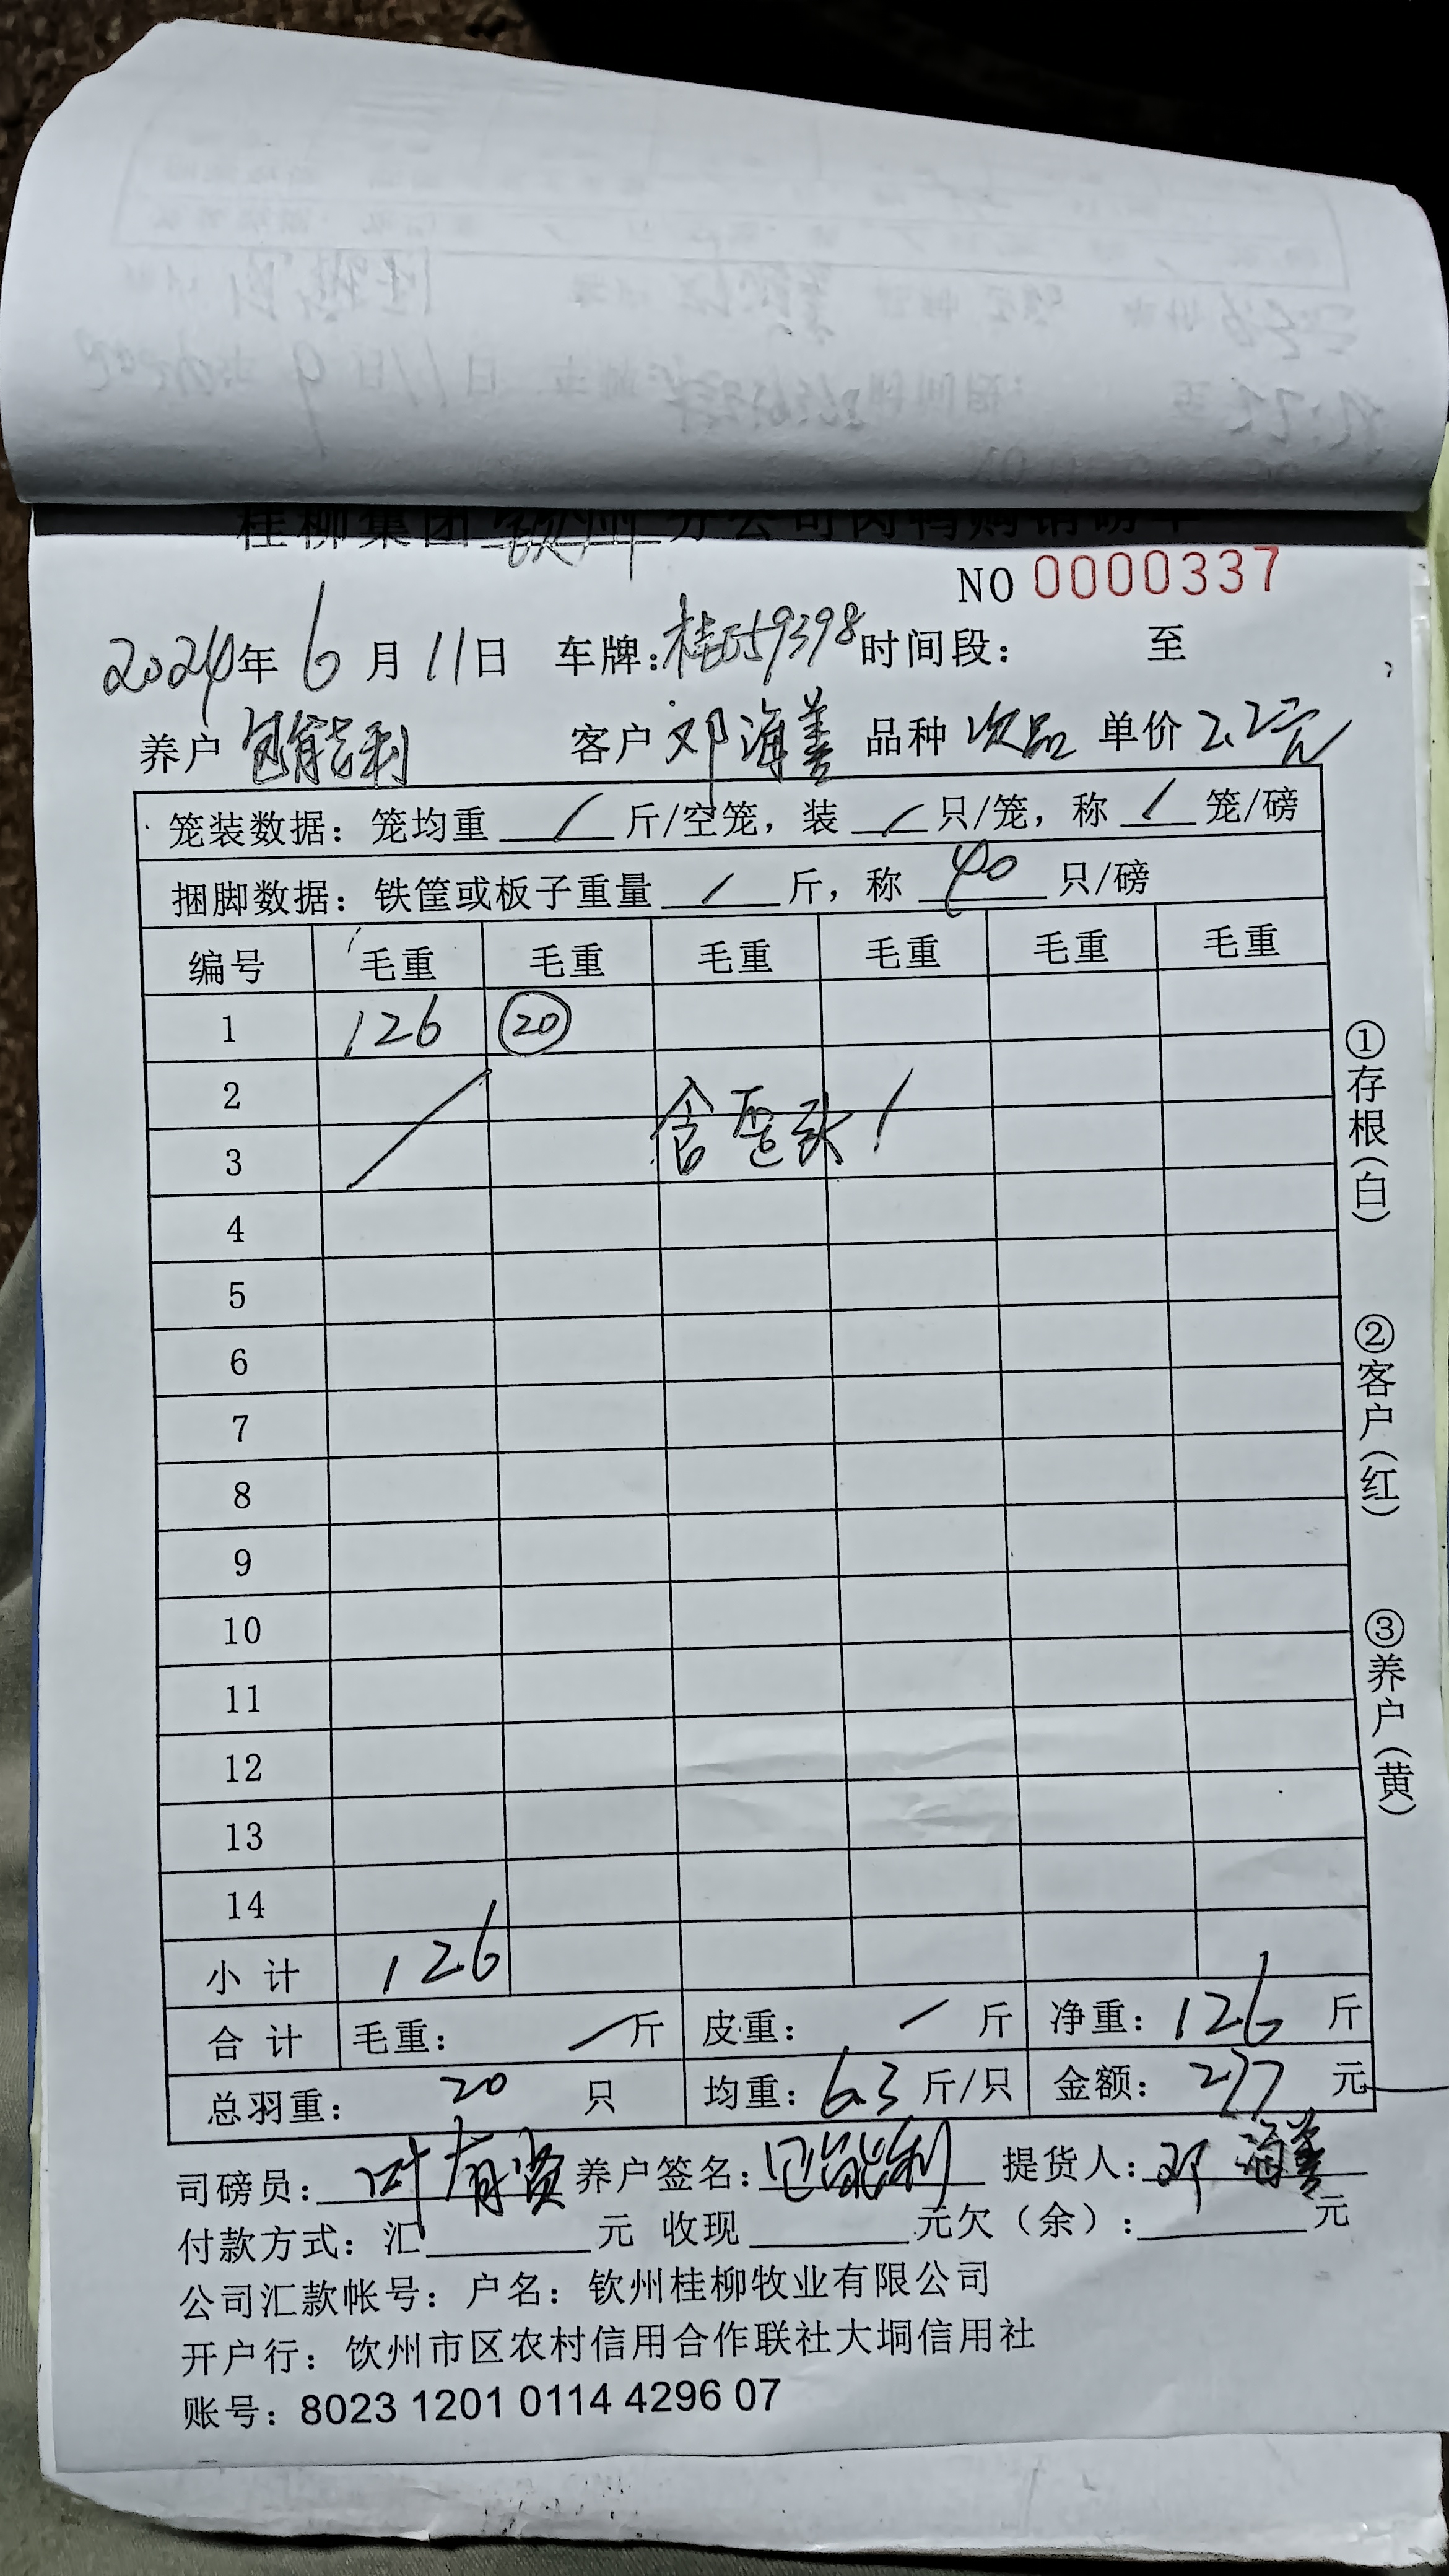 桂柳集团 钦州 分公司肉鸭购销磅单
NO 0000337
2024年 6 月 11日 车牌:桂E59398 时间段: 至
养户 包能利 客户 邓海善 品种 次品 单价 2.2元
笼装数据: 笼均重 / 斤/空笼, 装 / 只/笼, 称 / 笼/磅
捆脚数据: 铁筐或板子重量 / 斤, 称 40 只/磅
编号 毛重 毛重 毛重 毛重 毛重 毛重
1 126 20
2
3 含歪头 /
4
5
6
7
8
9
10
11
12
13
14
小计 126
合计 毛重: / 斤 皮重: / 斤 净重: 126 斤
总羽重: 20 只 均重: 6.3 斤/只 金额: 277 元
司磅员: 叶有贤 养户签名: 包能利 提货人: 邓海善
付款方式: 汇 元 收现 元欠(余): 元
公司汇款帐号: 户名: 钦州桂柳牧业有限公司
开户行: 钦州市区农村信用合作联社大垌信用社
账号: 8023 1201 0114 4296 07
①存根(白)
②客户(红)
③养户(黄)